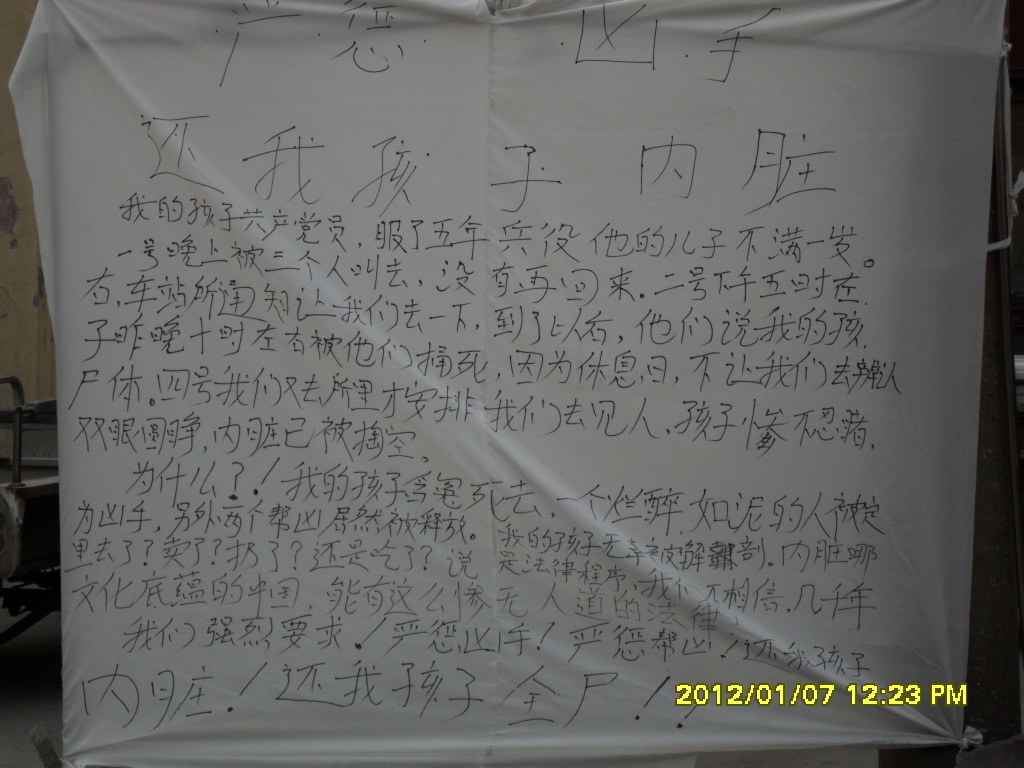 严惩凶手
还我孩子内脏
我的孩子共产党员，服了五年兵役他的儿子不满一岁。
一号晚上被三个人叫去，没有再回来。二号下午五时左
右，车站所通知让我们去一下，到了以后，他们说我的孩
子昨晚十时左右被他们捅死，因为休息日，不让我们去辨认
尸体。四号我们又去所里才安排我们去见人，孩子惨不忍睹，
双眼圆睁，内脏已被掏空。
为什么？！我的孩子含冤死去，一个烂醉如泥的人被定
为凶手，另外两个帮凶居然被释放。我的孩子无辜被解剖。内脏哪
里去了？卖了？扔了？还是吃了？说是法律程序，我们不相信，几千年
文化底蕴的中国，能有这么惨无人道的法律，
我们强烈要求！严惩凶手！严惩帮凶！还我孩子
内脏！还我孩子全尸！！
2012/01/07 12:23 PM